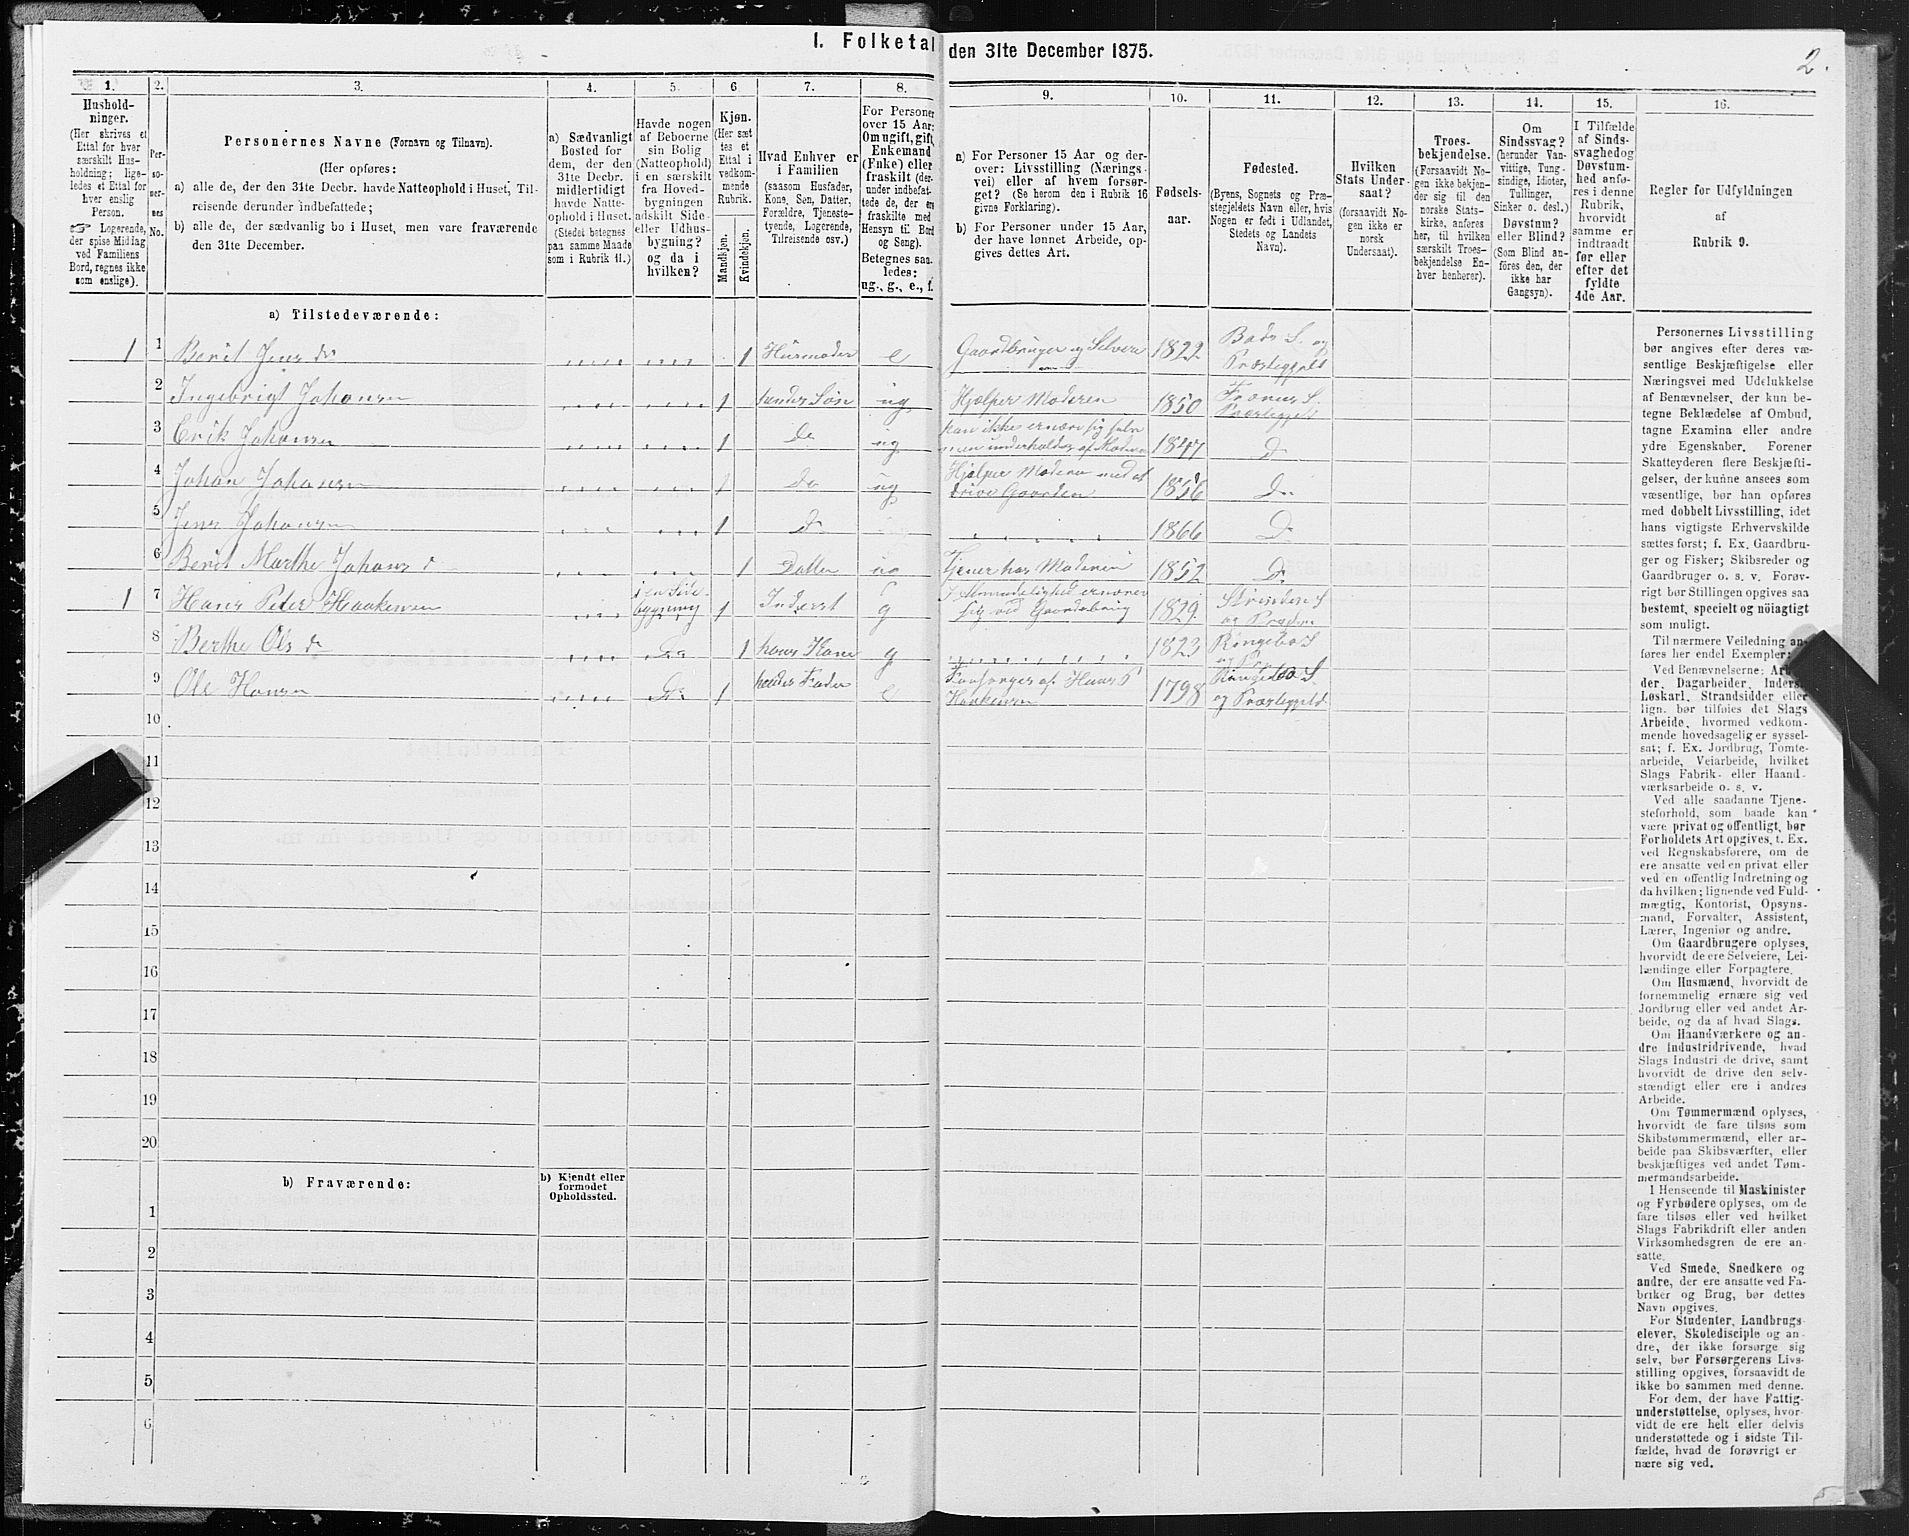 I. Folketal den 31te December 1875.
2.
1.
Hushold-
ninger.
(Her skrives et
Ettal for hver
særskilt Hus-
holdning; lige-
ledes et Ettal for
hver enslig
Person.
☞ Logerende,
der spise Middag
ved Familiens
Bord, regnes ikke
som enslige).
2.
Per-
so-
ner-
nes
No.
3.
Personernes Navne (Fornavn og Tilnavn).
(Her opføres:
a) alle de, der den 31te Decbr. havde Natteophold i Huset, Til-
reisende derunder indbefattede;
b) alle de, der sædvanlig bo i Huset, men vare fraværende
den 31te December.
4.
a) Sædvanligt
Bosted for
dem, der den
31te Decbr.
midlertidigt
havde Natte-
ophold i Huset.
(Stedet betegnes
paa samme Maade
som i Rubrik 11.)
5.
Havde nogen
af Beboerne
sin Bolig
(Natteophold)
i en særskilt
fra Hoved-
bygningen
adskilt Side-
eller Udhus-
bygning?
og da i
hvilken?
6.
Kjøn.
(Her sæt
tes et
Ettal i
vedkom-
mende
Rubrik.
Mandkjøn.
Kvindekjøn.
7.
Hvad Enhver er
i Familien
(saasom Husfader,
Kone, Søn, Datter,
Forældre, Tjeneste-
tyende, Logerende,
Tilreisende osv.)
8.
For Personer
over 15 Aar:
Om ugift, gift,
Enkemand
(Enke) eller
fraskilt (der-
under indbefat-
tede de, der ere
fraskilte med
Hensyn til Bord
og Seng).
Betegnes saa-
ledes:
ug., g., e., f.
9.
a) For Personer 15 Aar og der-
over: Livsstilling (Nærings-
vei) eller af hvem forsør-
get? (Se herom den i Rubrik 16
givne Forklaring).
b) For Personer under 15 Aar,
der have lønnet Arbeide, op-
gives dettes Art.
10.
Fødsels-
aar.
11.
Fødested.
(Byens, Sognets og Præ-
stegjeldets Navn eller, hvis
Nogen er født i Udlandet,
Stedets og Landets
Navn).
12.
Hvilken
Stats Under-
saat?
(forsaavidt No-
gen ikke er
norsk
Undersaat).
13.
Troes-
bekjendelse.
(Forsaavidt No-
gen ikke bekjen-
der sig til den
norske Stats-
kirke, anføres
her, til hvilken
særskilt Troes-
bekjendelse En-
hver henhører).
14.
Om
Sindssvag?
(herunder Van-
vittige, Tung-
sindige, Idioter,
Tullinger,
Sinker o. desl.)
Døvstum?
eller Blind?
(Som Blind an-
føres den, der
ikke har
Gangsyn).
15.
I Tilfælde
af Sinds-
svaghed og
Døvstum-
hed anfø-
res i denne
Rubrik,
hvorvidt
samme er
indtraadt
før eller
efter det
fyldte
4de Aar.
16.
Regler for Udfyldningen
af
Rubrik 9.
a) Tilstedeværende:
1 1 Berit Jens dr 1 Husmoder e Gaardbruger og Selveier 1822 Bods S. og Præstegjeld
2 Ingebrigt Johansen 1 hendes Søn ug Hjælper Moderen 1850 Frænes S. Præstegjeld
3 Erik Johansen 1 Do ug kan ikke ernære sig selv men underholdes af Moderen 1847 Do
4 Johan Johansen 1 Do ug Hjælper Moderen med at drive Gaarden 1856 Do
5 Jens Johansen 1 Do 1866 Do
6 Berit Marthe Johans dr 1 Datter ug Tjener hos Moderen 1852 Do
1 7 Hans Peder Haakensen i en Side-bygning 1 Inderst g I Almindelighed ernærer sig ved Gaardsbrug 1829 Strinden S og Præst.
8 Berthe Ols dr Do 1 hans Kone g 1823 Ringebo S
9 Ole Hansen Do 1 hendes Fader e Forsørges af Hans P Haakensen 1798 Ringebo S. og Præstegjeld
10
11
12
13
14
15
16
17
18
19
20
b) Fraværende:
b) Kjendt eller
formodet
Opholdssted.
1
2
3
4
5
6
Personernes Livsstilling
bør angives efter deres væ-
sentlige Beskjæftigelse eller
Næringsvei med Udelukkelse
af Benævnelser, der kun be-
tegne Beklædelse af Ombud,
tagne Examina eller andre
ydre Egenskaber. Forener
Skatteyderen flere Beskjæfti-
gelser, der kunne ansees som
væsentlige, bør han opføres
med dobbelt Livsstilling, idet
hans vigtigste Erhvervskilde
sættes først; f. Ex. Gaardbru-
ger og Fisker; Skibsreder og
Gaardbruger o. s. v. Forøv-
rigt bør Stillingen opgives saa
bestemt, specielt og nöiagtigt
som muligt.
Til nærmere Veiledning an-
føres her endel Exempler:
Ved Benævnelserne: Arbei-
der, Dagarbeider, Inderst,
Løskarl, Strandsidder eller
lign. bør tilføies det Slags
Arbeide, hvormed vedkom-
mende hovedsagelig er syssel-
sat; f. Ex. Jordbrug, Tomte-
arbeide, Veiarbeide, hvilket
Slags Fabrik- eller Haand-
værksarbeide o. s. v.
Ved alle saadanne Tjene-
steforhold, som baade kan
være privat og offentligt, bør
Forholdets Art opgives, t. Ex.
ved Regnskabsførere, om de
ere ansatte ved en privat eller
ved en offentlig Indretning og
da hvilken; lignende ved Fuld-
mægtig, Kontorist, Opsyns-
mand, Forvalter, Assistent,
Lærer, Ingeniør og andre.
Om Gaardbrugere oplyses,
hvorvidt de ere Selveiere, Lei-
lændinge eller Forpagtere.
Om Husmænd, hvorvidt de
fornemmelig ernære sig ved
Jordbrug eller ved andet Ar-
beide, og da af hvad Slags.
Om Haandværkere og an-
dre Industridrivende, hvad
Slags Industri de drive, samt
hvorvidt de drive den selv-
stændigt eller ere i andres
Arbeide.
Om Tømmermænd oplyses,
hvorvidt de fare tilsøs som
Skibstømmermænd, eller ar-
beide paa Skibsværfter, eller
beskjæftiges ved andet Tøm-
mermandsarbeide.
I Henseende til Maskinister
og Fyrbødere oplyses, om de
fare tilsøs eller ved hvilket
Slags Fabrikdrift eller anden
Virksomhedsgren de ere an-
satte.
Ved Smede, Snedkere og
andre, der ere ansatte ved Fa-
briker og Brug, bør dettes
Navn opgives.
For Studenter, Landbrugs-
elever, Skoledisciple og an-
dre, der ikke forsørge sig
selv, bør Forsørgerens Livs-
stilling opgives, forsaavidt de
ikke bo sammen med denne.
For dem, der have Fattig-
understøttelse, oplyses, hvor-
vidt de ere helt eller delvis
understøttede og i sidste Til-
fælde, hvad de forøvrigt er
nære sig ved.